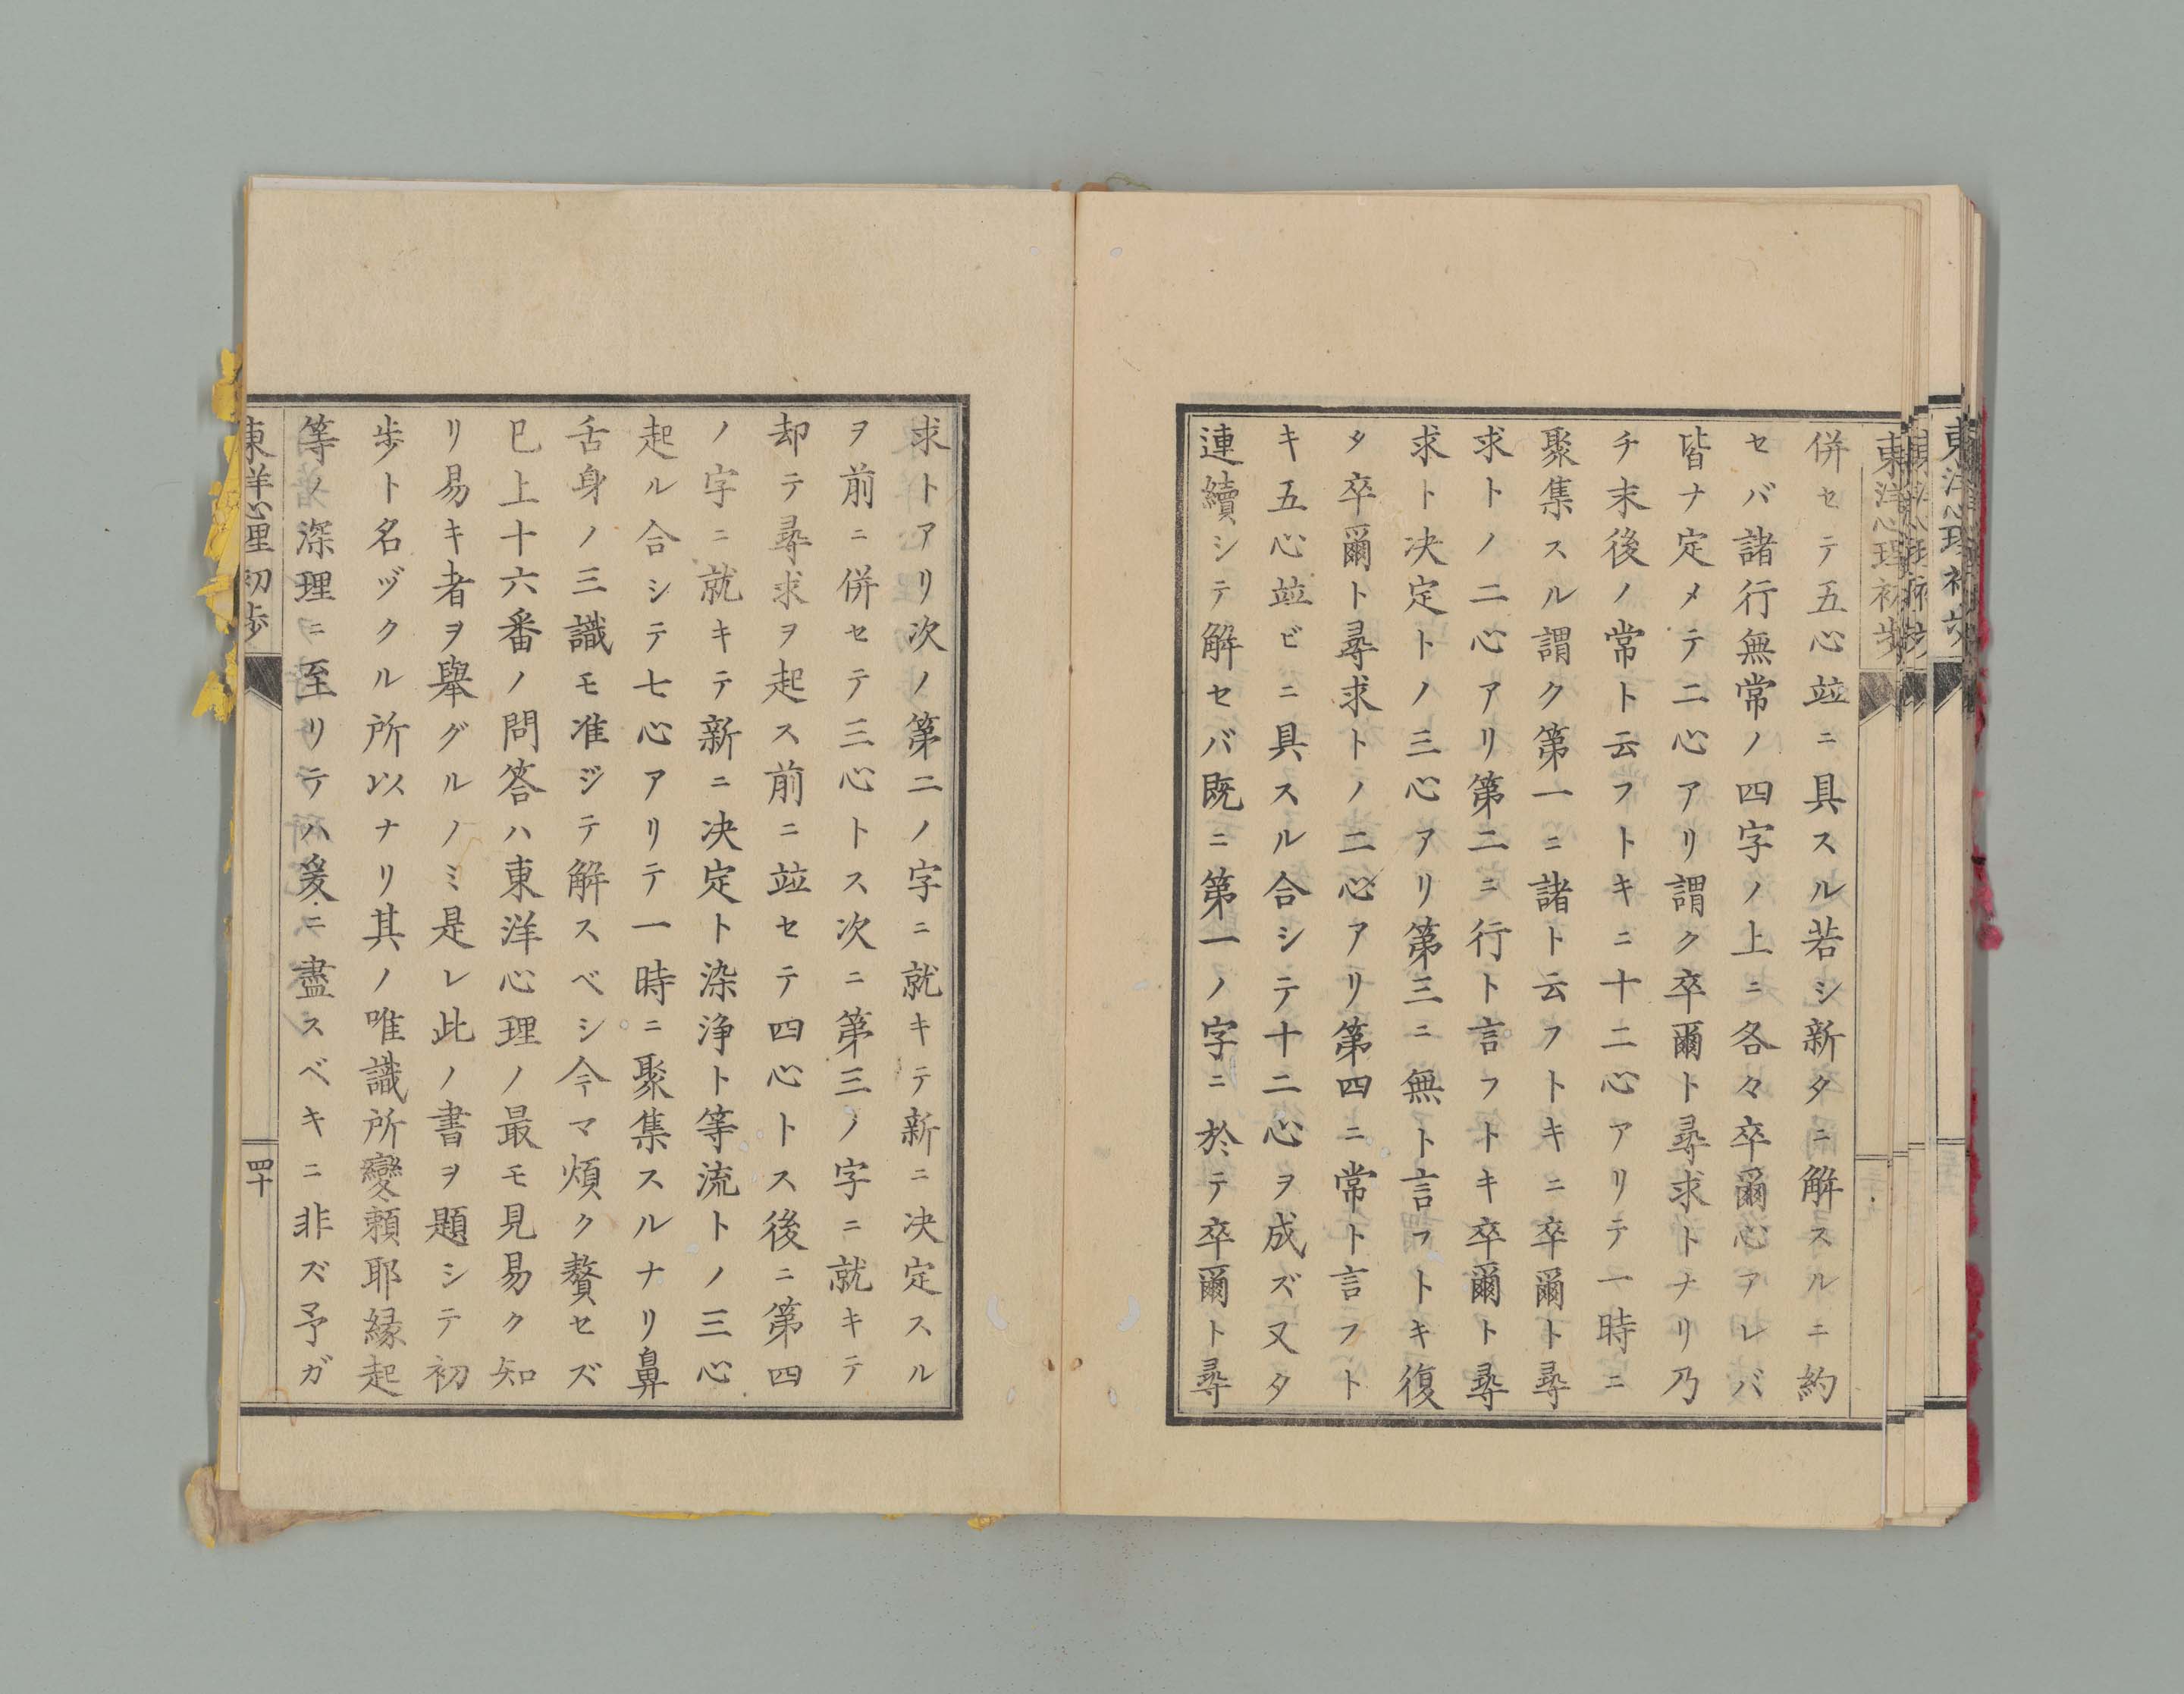 東洋心理初歩
東洋心理初歩
併セテ五心竝ニ具スル若シ新タニ解スルニ約
セバ諸行無常ノ四字ノ上ニ各々卒爾心アレバ
皆ナ定メテ二心アリ謂ク卒爾ト尋求トナリ乃
チ末後ノ常ト云フトキニ十二心アリテ一時ニ
聚集スル謂ク第一ニ諸ト云フトキニ卒爾ト尋
求トノ二心アリ第二ニ行ト言フトキ卒爾ト尋
求ト决定トノ三心アリ第三ニ無ト言フトキ復
タ卒爾ト尋求トノ二心アリ第四ニ常ト言フト
キ五心竝ビニ具スル合シテ十二心ヲ成ズ又タ
連續シテ解セバ既ニ第一ノ字ニ於テ卒爾ト尋
求トアリ次ノ第二ノ字ニ就キテ新ニ决定スル
ヲ前ニ併セテ三心トス次ニ第三ノ字ニ就キテ
却テ尋求ヲ起ス前ニ竝セテ四心トス後ニ第四
ノ字ニ就キテ新ニ决定ト染淨ト等流トノ三心
起ル合シテ七心アリテ一時ニ聚集スルナリ鼻
舌身ノ三識モ准ジテ解スベシ今マ煩ク贅セズ
已上十六番ノ問答ハ東洋心理ノ最モ見易ク知
リ易キ者ヲ擧グルノミ是レ此ノ書ヲ題シテ初
歩ト名ヅクル所以ナリ其ノ唯識所變頼耶縁起
等ノ深理ニ至リテハ爰ニ盡スベキニ非ズ予ガ
東洋心理初歩
四十